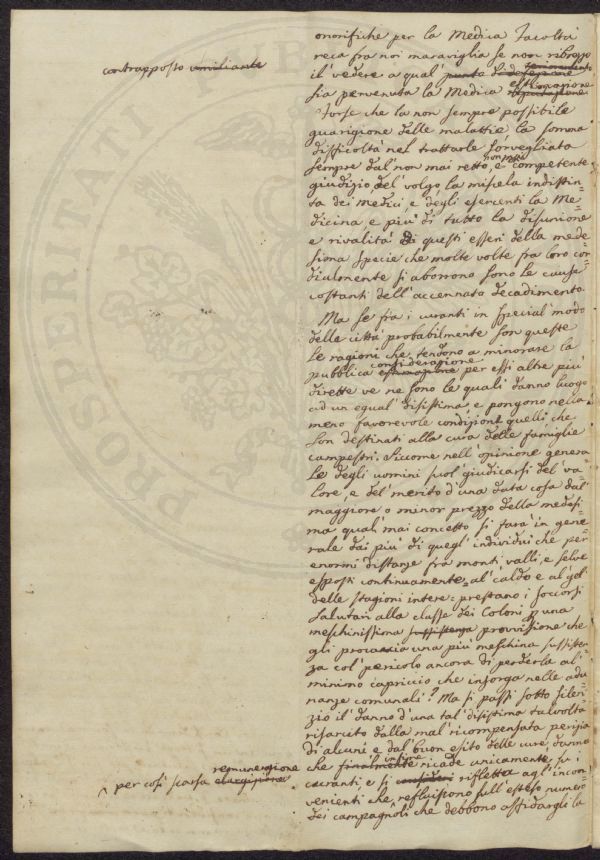 onorifiche per la Medica Facoltà
reca fra noi maraviglia se non ribrezzo
contrapposto umiliante
il vedere a qual punto
sia pervenuta la Medica estimazione
Forse che la non sempre possibile
guarigione delle malattie la somma
difficoltà nel trattarle sorvegliata
sempre dal non mai retto, e non mai competente
giudizio del volgo la miscela indistin-
ta dei Medici e degli esercenti la Me-
dicina, e più di tutto la disunione
e rivalità di questi esseri della mede-
sima specie che molte volte fra loro cor-
dialmente si aborrono sono le cause
costanti dell'accennato decadimento.
Ma se fra i curanti in special modo
delle città probabilmente son queste
le ragioni che tendono a minorare la
pubblica estimazione considerazione per essi altre più
dirette ve ne sono le quali danno luogo
ad un egual disistima, e pongono nella
meno favorevole condizione quelli che
son destinati alla cura delle famiglie
campestri. Siccome nell'opinione genera
le degli uomini suol giudicarsi del va-
lore, e del merito d'una data cosa dal
maggiore o minor prezzo della medesi-
ma qual mai concetto si farà in gene-
rale dai più di quegl'individui che per
enormi distanze fra monti, valli, e selve
esposti continuamente al caldo e al gel
delle stagioni intere prestano i soccorsi
salutari alla classe dei Coloni p una
meschinissima sussistenza provvisione che
gli procaccia una più meschina sussisten-
za col pericolo ancora di perderla al
minimo capriccio che insorga nelle adu
nanze comunali? Ma si passi sotto silen-
zio il danno d'una tal disistima talvolta
risarcito dalla mal ricompensata perizia
di alcuni e dal buon esito delle cure, danno
che finalmente infine ricade unicamente su i
per così scarsa remunerazione
curanti, e si rifletta agl'incon
venienti che refluiscono sull'esteso numero
dei campagnoli che debbono affidargli la